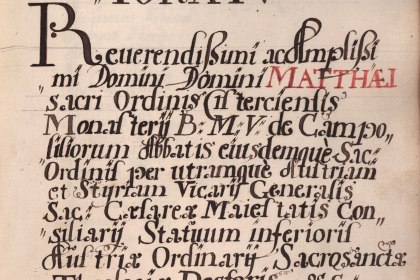 Reverendißimi ac Amplißi
mi Domini Domini MATTHÆI
sacri Ordinis Cisterciensis
Monasterij B: M: V: de Campo-
„liliorum Abbatis eiusdemque Sac„
„Ordinis per utramque Austriam
et Styriam Vicarij Generalis
Sac: Cæsareæ Maiestatis Con„
„siliarij Statuum inferioris
Austriæ Ordinarij Sacrosanctæ